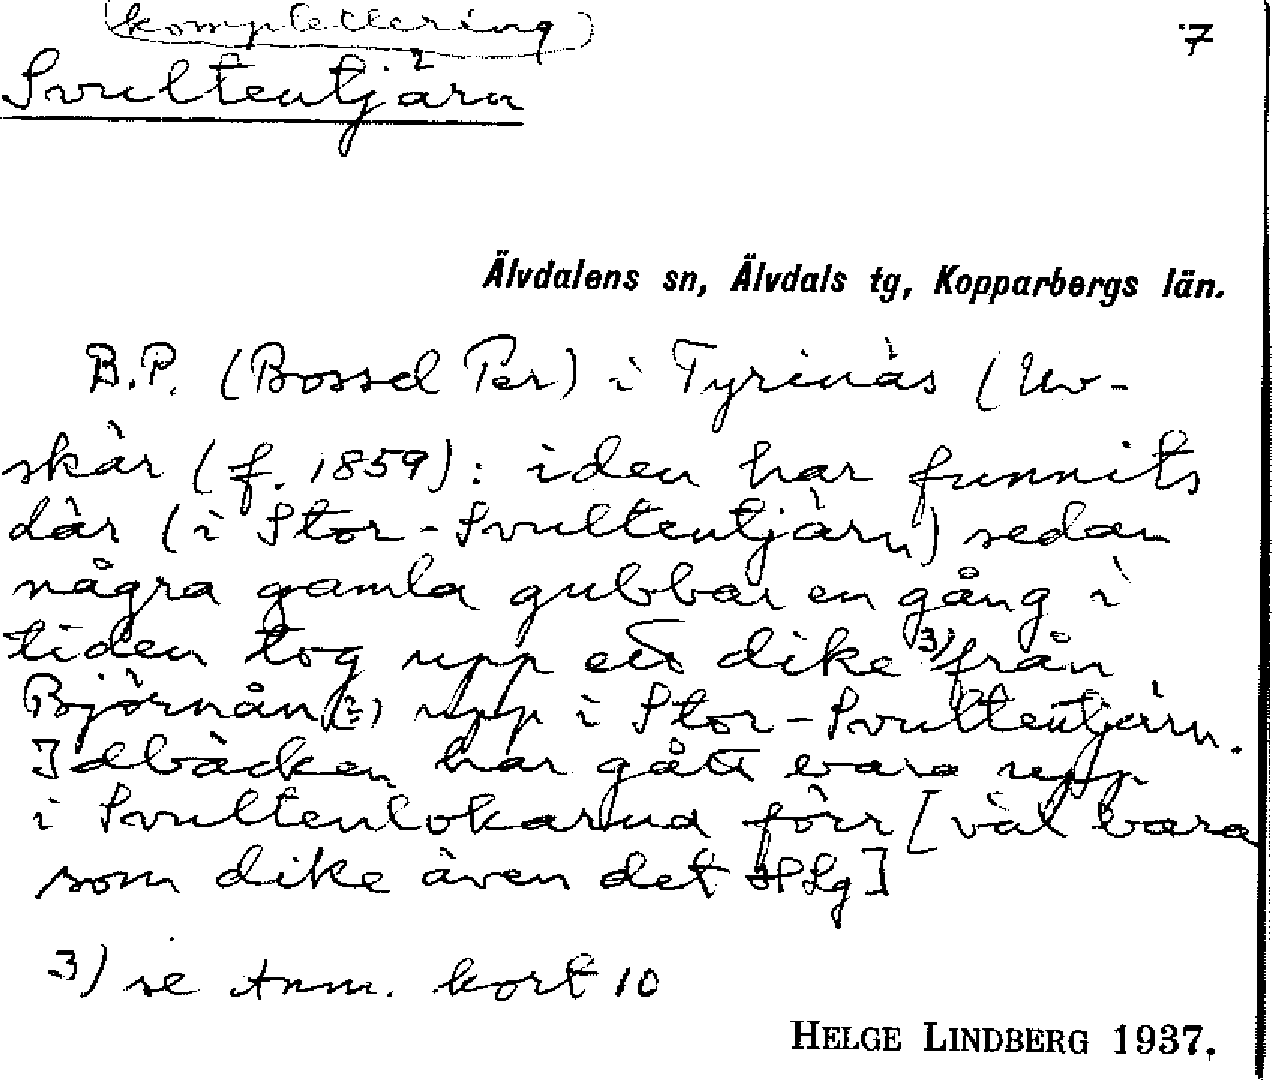 komplettering
7
Svultentjärn
Älvdalens sn, Älvdals tg, Kopparbergs län.
B.P. (Bossel Per) i Tyrinäs (Uv-
skär (f. 1859): iden har funnits
där (i Stor-Svultentjärn) sedan
några gamla gubbar en gång i
tiden tog upp ett dike 3) från
Björnån(?) upp i Stor-Svultentjärn.
Idbäcken har gått bara upp
i Svultenlokarna förr [väl bara
som dike även det HLg]
3) se Anm. kort 10
HELGE LINDBERG 1937.